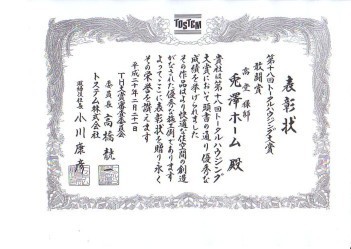 TOSTEM
表彰状
第十八回トータルハウジング大賞
敢闘賞
兎澤ホーム殿
貴社は第十八回トータルハウジング
大賞において頭書の通り優秀な
成績を挙げられました
その作品はより快適な住空間の創造
がなされた優秀な施工例であります
よってここに表彰状を贈り永く
その栄誉を讃えます
平成二十年二月二十一日
TH大賞審査委員会
委員長 高橋
トステム株式会社
取締役社長 小川康彦